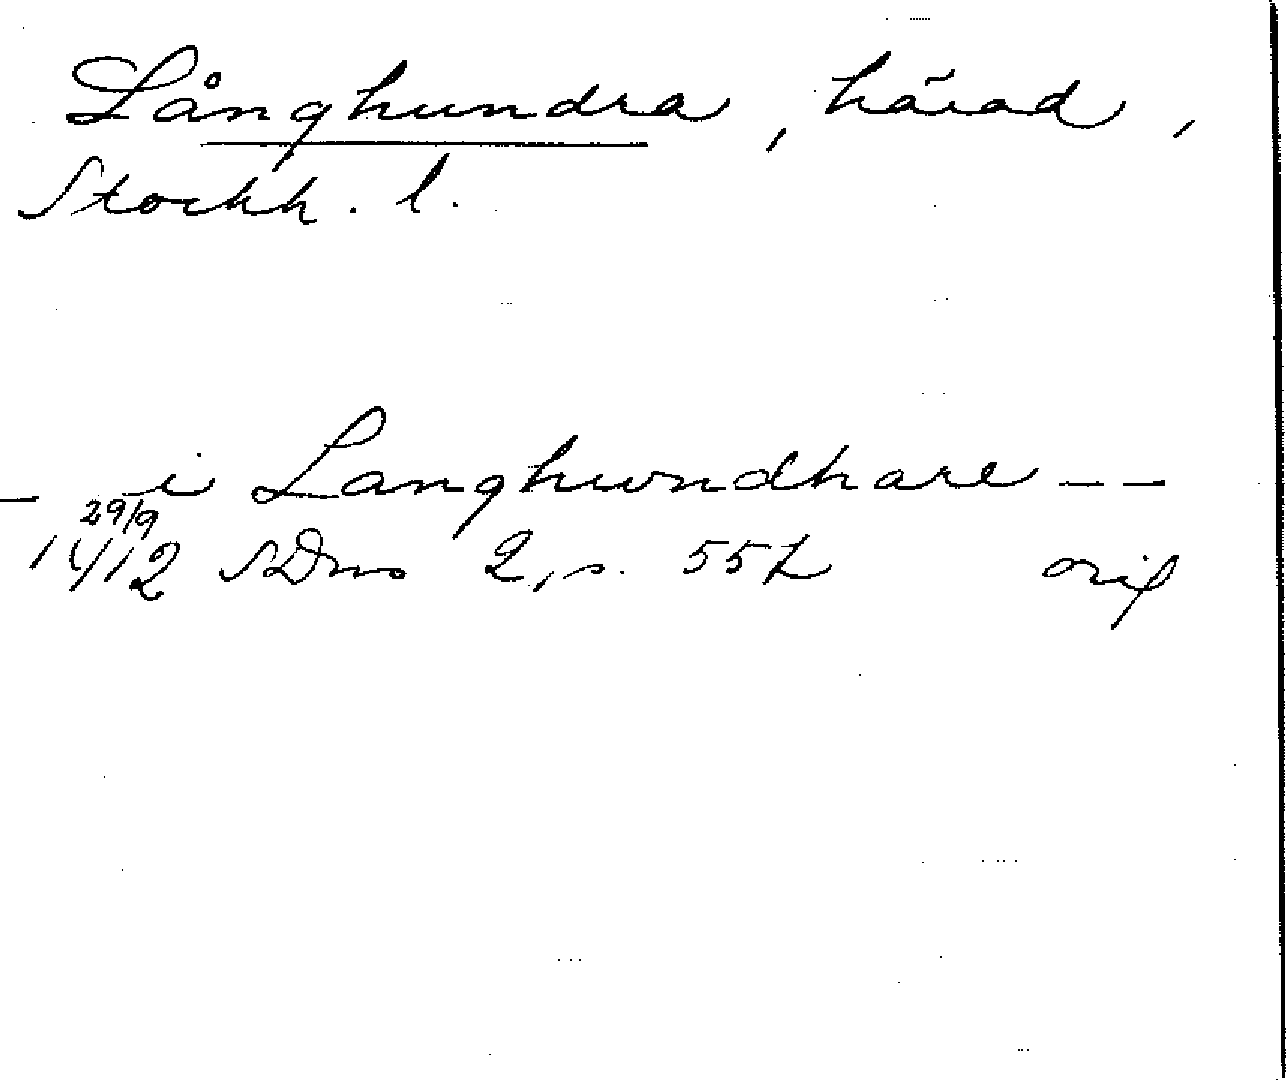 Långhundra, härad,
Stockh. l.
- i Langhwndhare --
29/9
1412 SDns 2, s. 557 orig